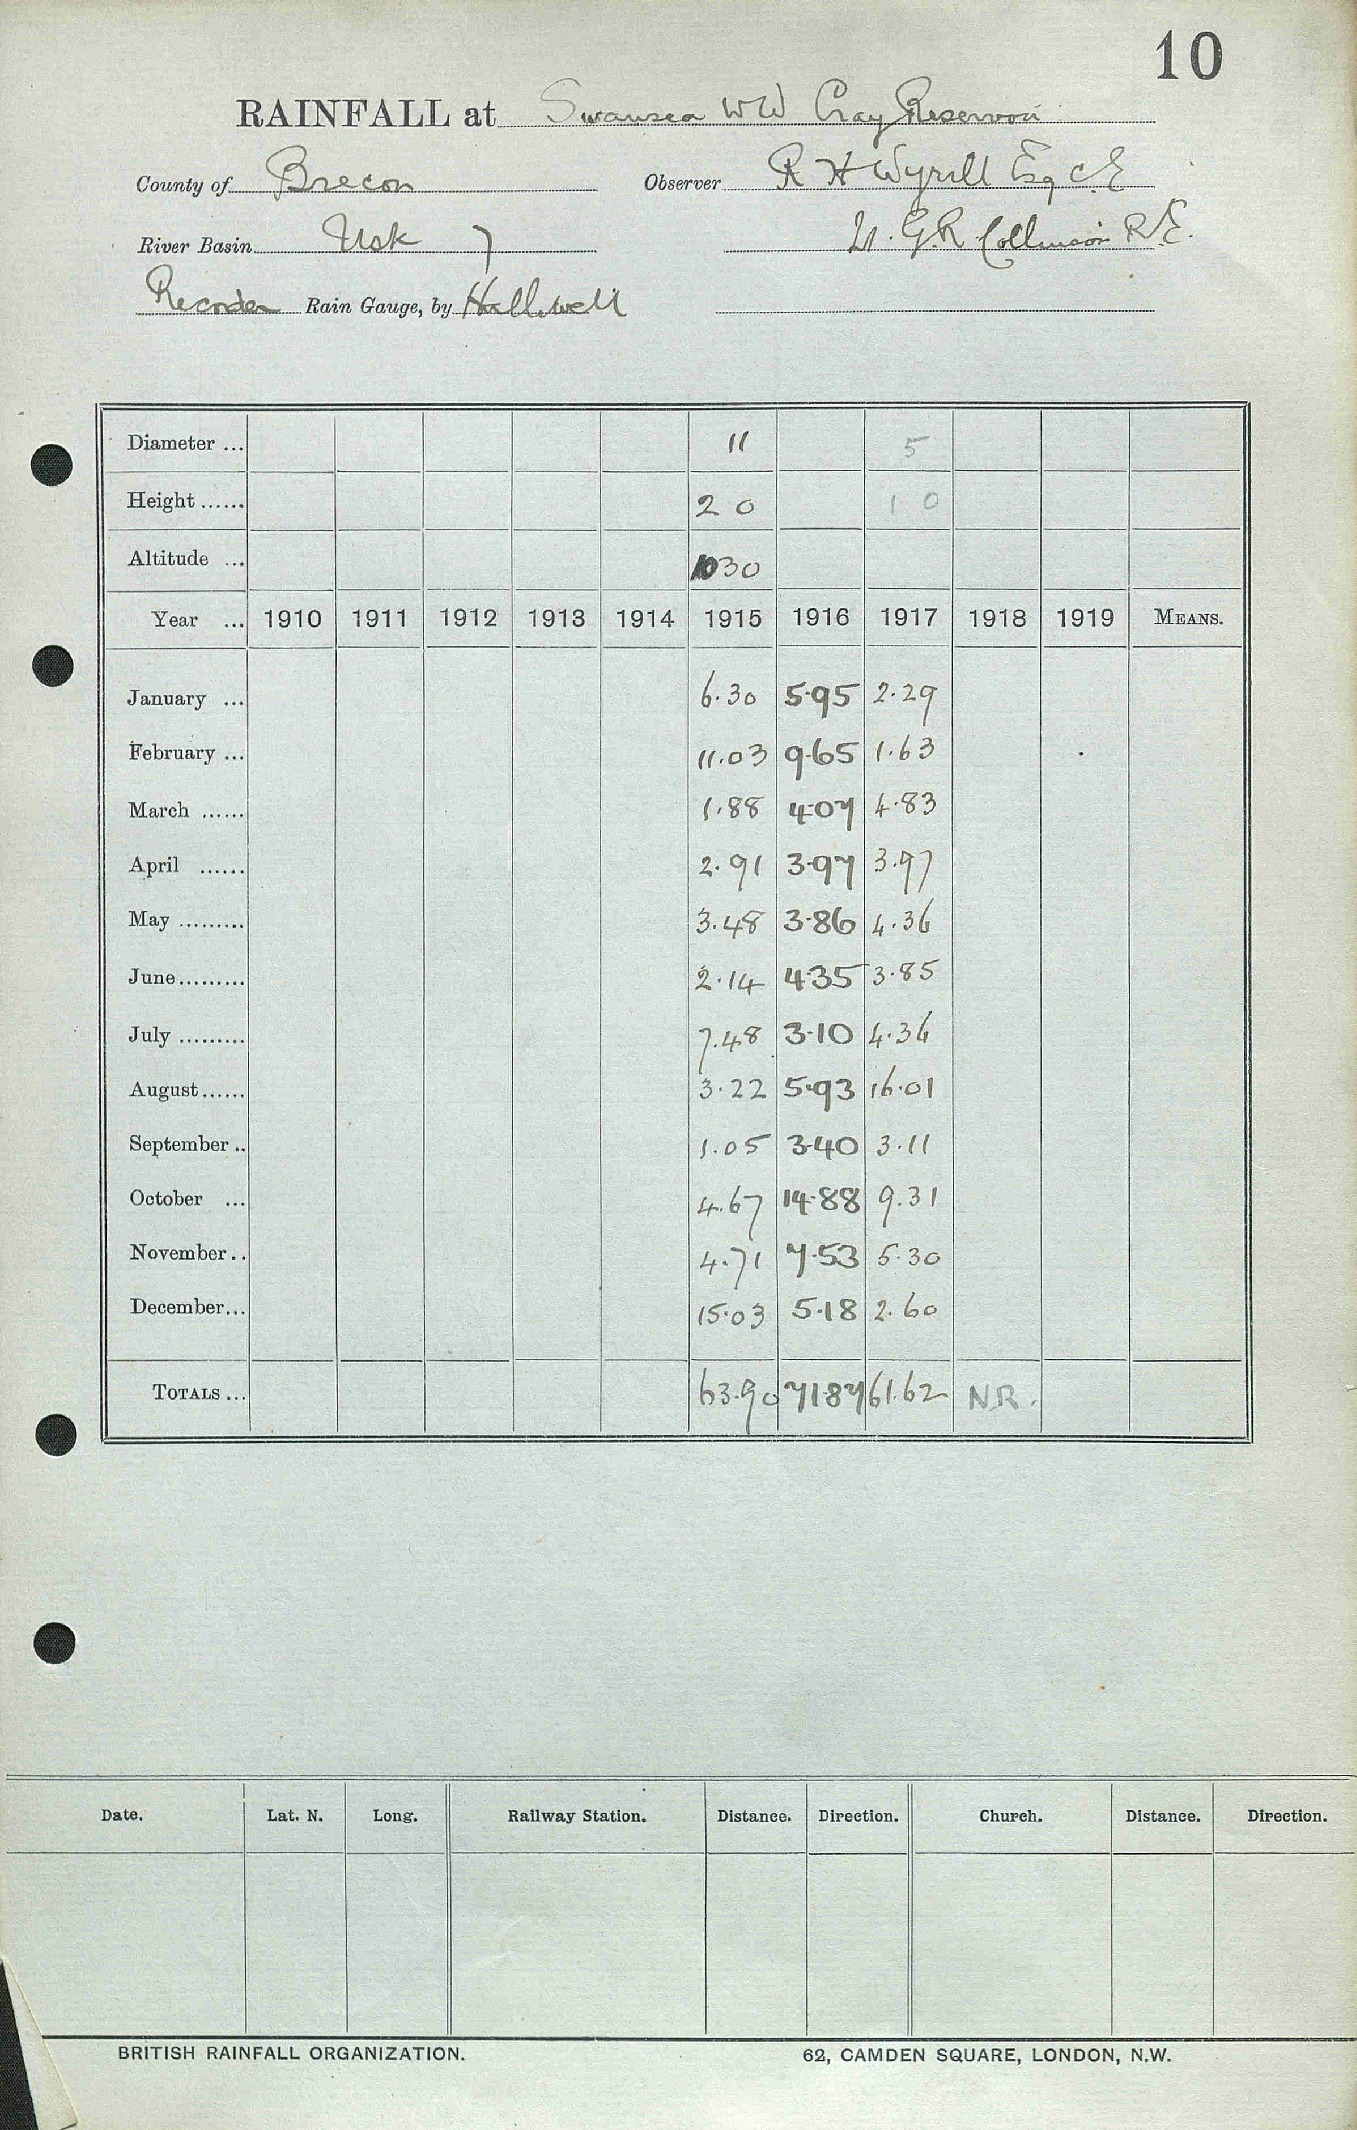 10
RAINFALL at Swansea WW Cray Reservoir
County of Brecon Observer R H Wyrill Esq C.E
River Basin Usk 7 G.R. Collinson R.E.
Recorder Rain Gauge, by Halliwell
Diameter ... 11 5
Height ...... 2 0 1 0
Altitude ... 1030
Year ... 1910 1911 1912 1913 1914 1915 1916 1917 1918 1919 MEANS.
January ... 6.30 5.95 2.29
February ... 11.03 9.65 1.63
March ...... 1.88 4.07 4.83
April ...... 2.91 3.97 3.97
May ......... 3.48 3.86 4.36
June......... 2.14 4.35 3.85
July ......... 7.48 3.10 4.36
August...... 3.22 5.93 16.01
September .. 1.05 3.40 3.11
October ... 4.67 14.88 9.31
November.. 4.71 7.53 5.30
December... 15.03 5.18 2.60
TOTALS ... 63.90 71.87 61.62 N.R.
Date. Lat. N. Long. Railway Station. Distance. Direction. Church. Distance. Direction.
BRITISH RAINFALL ORGANIZATION. 62, CAMDEN SQUARE, LONDON, N.W.